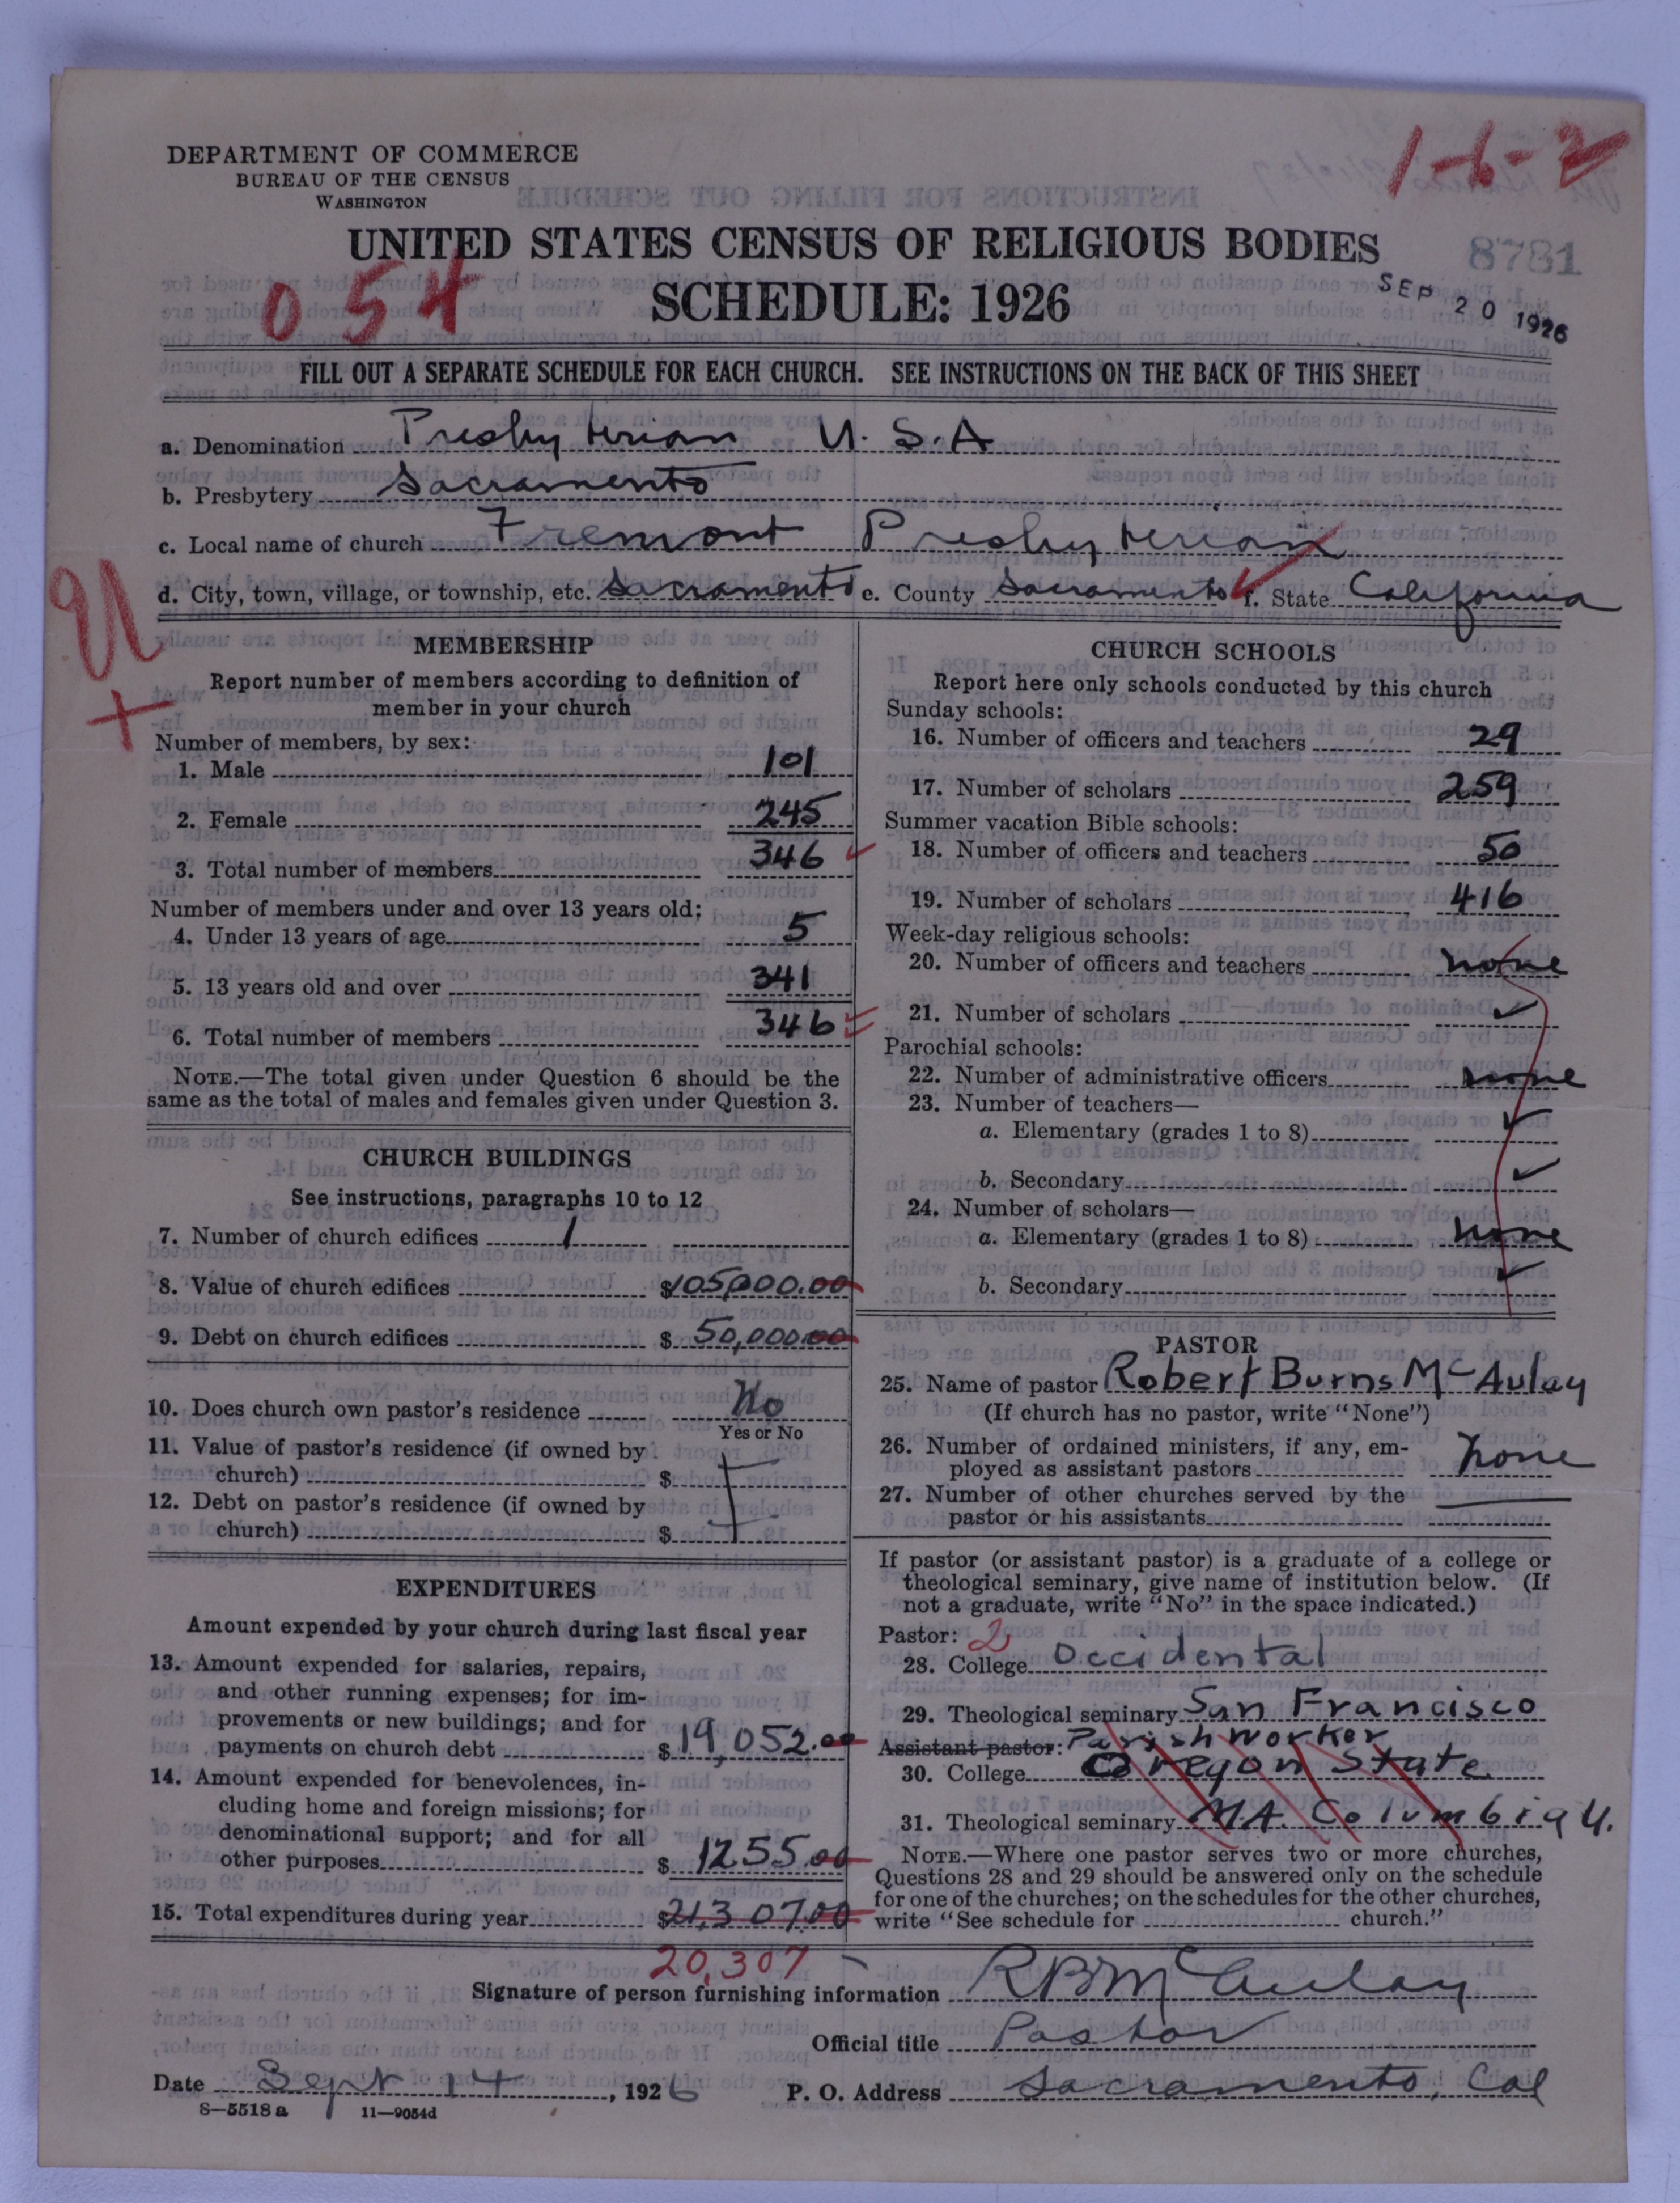 DEPARTMENT OF COMMERCE
BUREAU OF THE CENSUS
WASHINGTON
1-6-2
UNITED STATES CENSUS OF RELIGIOUS BODIES
8781
054
SCHEDULE: 1926
SEP 20 1926
FILL OUT A SEPARATE SCHEDULE FOR EACH CHURCH. SEE INSTRUCTIONS ON THE BACK OF THIS SHEET
a. Denomination Presbyterian U.S.A
b. Presbytery Sacramento
c. Local name of church Fremont Presbyterian
d. City, town, village, or township, etc. Sacramento e. County Sacramento f. State California
MEMBERSHIP
Report number of members according to definition of
member in your church
Number of members, by sex:
1. Male 101
2. Female 245
3. Total number of members 346
Number of members under and over 13 years old:
4. Under 13 years of age 5
5. 13 years old and over 341
6. Total number of members 346
NOTE.—The total given under Question 6 should be the
same as the total of males and females given under Question 3.
CHURCH BUILDINGS
See instructions, paragraphs 10 to 12
7. Number of church edifices 1
8. Value of church edifices $105,000.00
9. Debt on church edifices $50,000.00
10. Does church own pastor's residence No
Yes or No
11. Value of pastor's residence (if owned by
church) $
12. Debt on pastor's residence (if owned by
church) $
EXPENDITURES
Amount expended by your church during last fiscal year
13. Amount expended for salaries, repairs,
and other running expenses; for im-
provements or new buildings; and for
payments on church debt $19,052.00
14. Amount expended for benevolences, in-
cluding home and foreign missions; for
denominational support; and for all
other purposes $1255.00
15. Total expenditures during year $21,307.00
20,307
CHURCH SCHOOLS
Report here only schools conducted by this church
Sunday schools:
16. Number of officers and teachers 29
17. Number of scholars 259
Summer vacation Bible schools:
18. Number of officers and teachers 50
19. Number of scholars 416
Week-day religious schools:
20. Number of officers and teachers none
21. Number of scholars
Parochial schools:
22. Number of administrative officers none
23. Number of teachers—
a. Elementary (grades 1 to 8)
b. Secondary
24. Number of scholars—
a. Elementary (grades 1 to 8) none
b. Secondary
PASTOR
25. Name of pastor Robert Burns McAulay
(If church has no pastor, write "None")
26. Number of ordained ministers, if any, em-
ployed as assistant pastors none
27. Number of other churches served by the
pastor or his assistants
If pastor (or assistant pastor) is a graduate of a college or
theological seminary, give name of institution below. (If
not a graduate, write "No" in the space indicated.)
Pastor: 2
28. College Occidental
29. Theological seminary San Francisco
Assistant pastor: Parish Worker
30. College Oregon State
31. Theological seminary M.A. Columbia U.
NOTE.—Where one pastor serves two or more churches,
Questions 28 and 29 should be answered only on the schedule
for one of the churches; on the schedules for the other churches,
write "See schedule for church."
Signature of person furnishing information RB McAulay
Official title Pastor
Date Sept 14, 1926 P. O. Address Sacramento, Cal
8—5518a 11—9054d